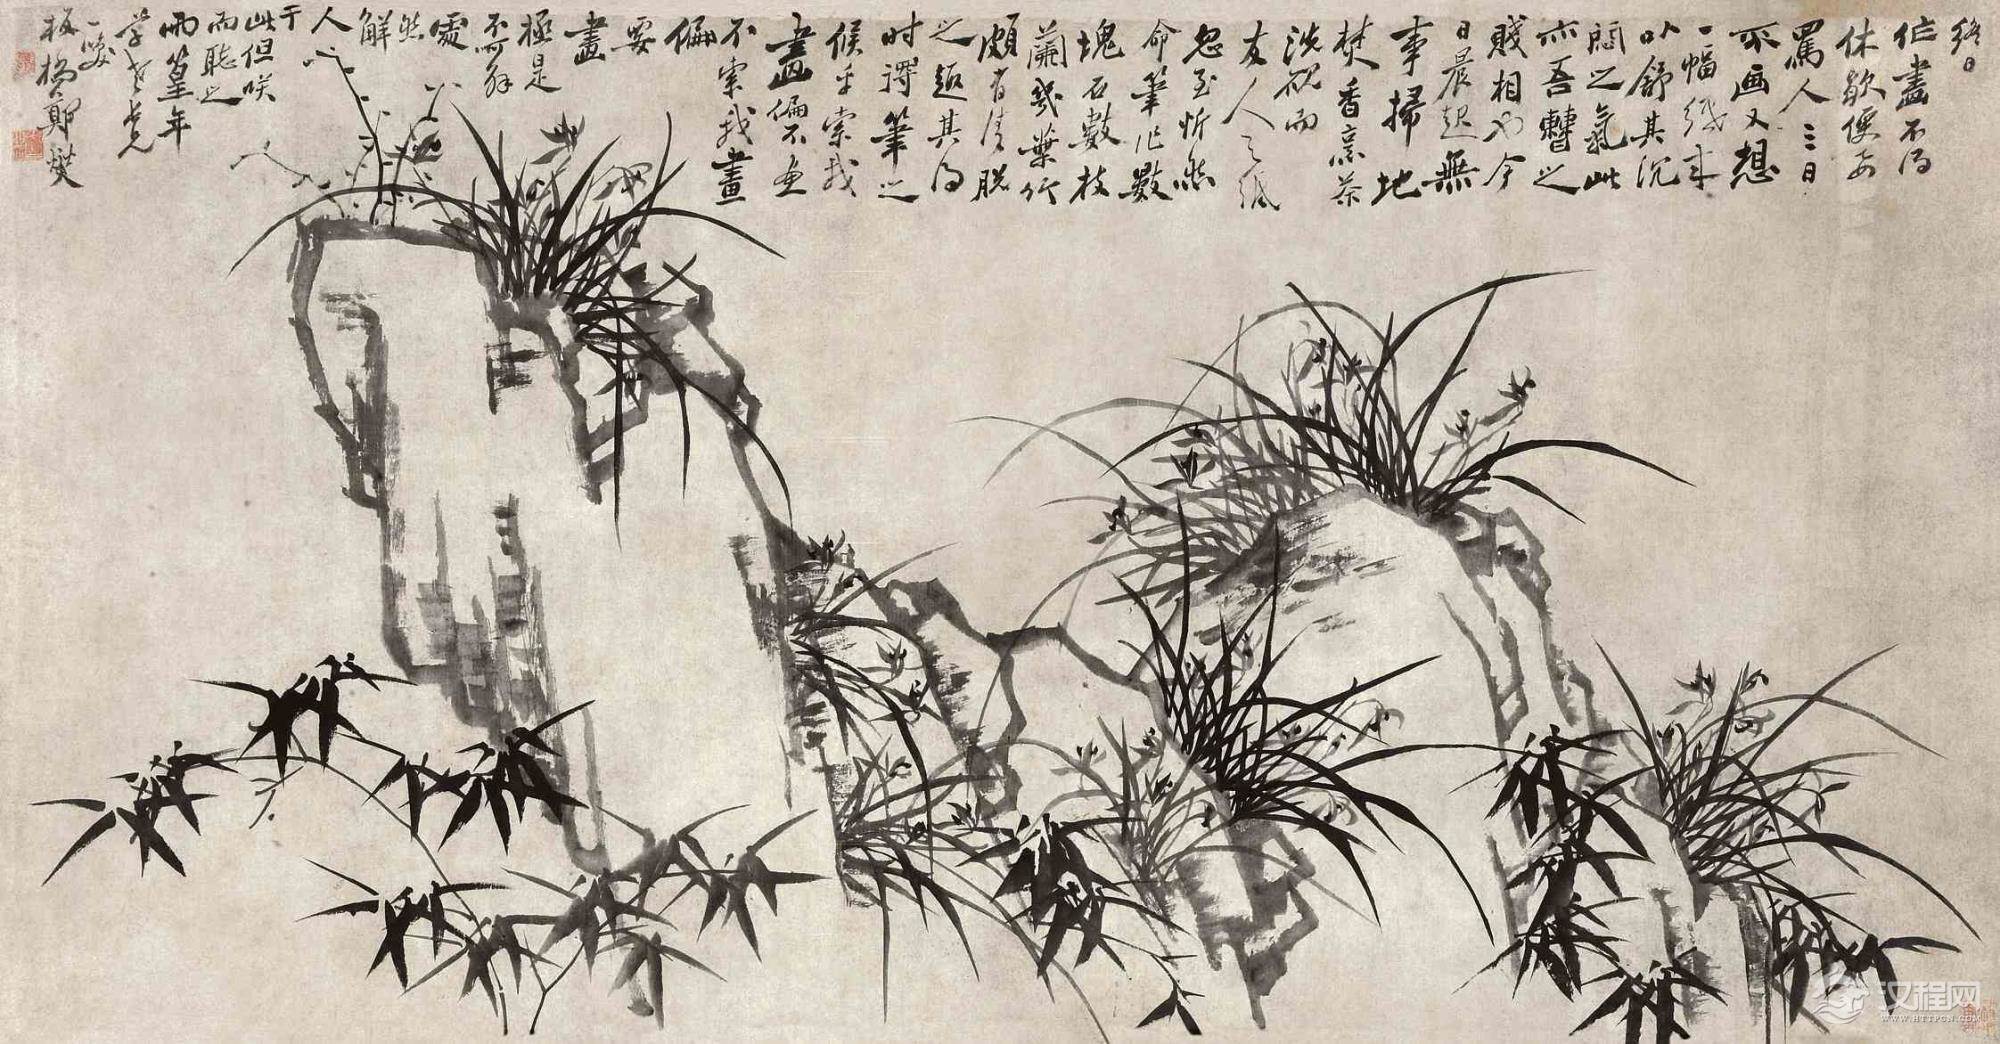 終日
作畫不得
休歇便要
罵人三日
不画又想
一幅紙來
以舒其沉
悶之氣此
亦吾曹之
賤相也今
日晨起無
事掃地
焚香烹茶
洗硯而
友人之紙
忽至忻然
命筆作數
塊石數枝
蘭幾葉竹
頗有清脫
之趣其得
时得筆之
候乎索我
畫偏不画
不索我畫
偏
要
畫
極是
不可解
處
然
解
人
于
此但咲
而聽之
雨篁年
學老長兄
一咲
板橋鄭燮
汉程网
WWW.HTTPCN.COM